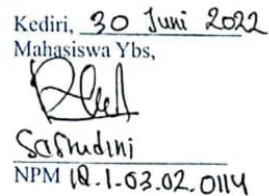 Kediri, 30 Juni 2022
Mahasiswa Ybs,
Safrudini
NPM 18.1.03.02.0114